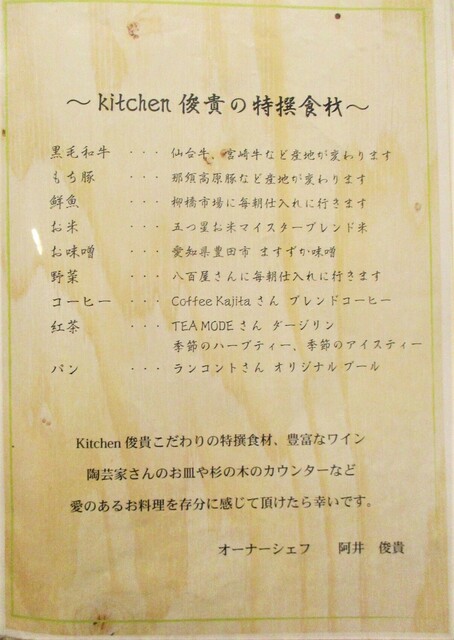 ～kitchen 俊貴の特撰食材～
黒毛和牛 ・・・ 仙台牛、宮崎牛など産地が変わります
もち豚 ・・・ 那須高原豚など産地が変わります
鮮魚 ・・・ 柳橋市場に毎朝仕入れに行きます
お米 ・・・ 五つ星お米マイスターブレンド米
お味噌 ・・・ 愛知県豊田市 ますずか味噌
野菜 ・・・ 八百屋さんに毎朝仕入れに行きます
コーヒー ・・・ Coffee Kajita さん ブレンドコーヒー
紅茶 ・・・ TEA MODE さん ダージリン
季節のハーブティー、季節のアイスティー
パン ・・・ ランコントさん オリジナルブール
Kitchen 俊貴こだわりの特撰食材、豊富なワイン
陶芸家さんのお皿や杉の木のカウンターなど
愛のあるお料理を存分に感じて頂けたら幸いです。
オーナーシェフ 阿井 俊貴